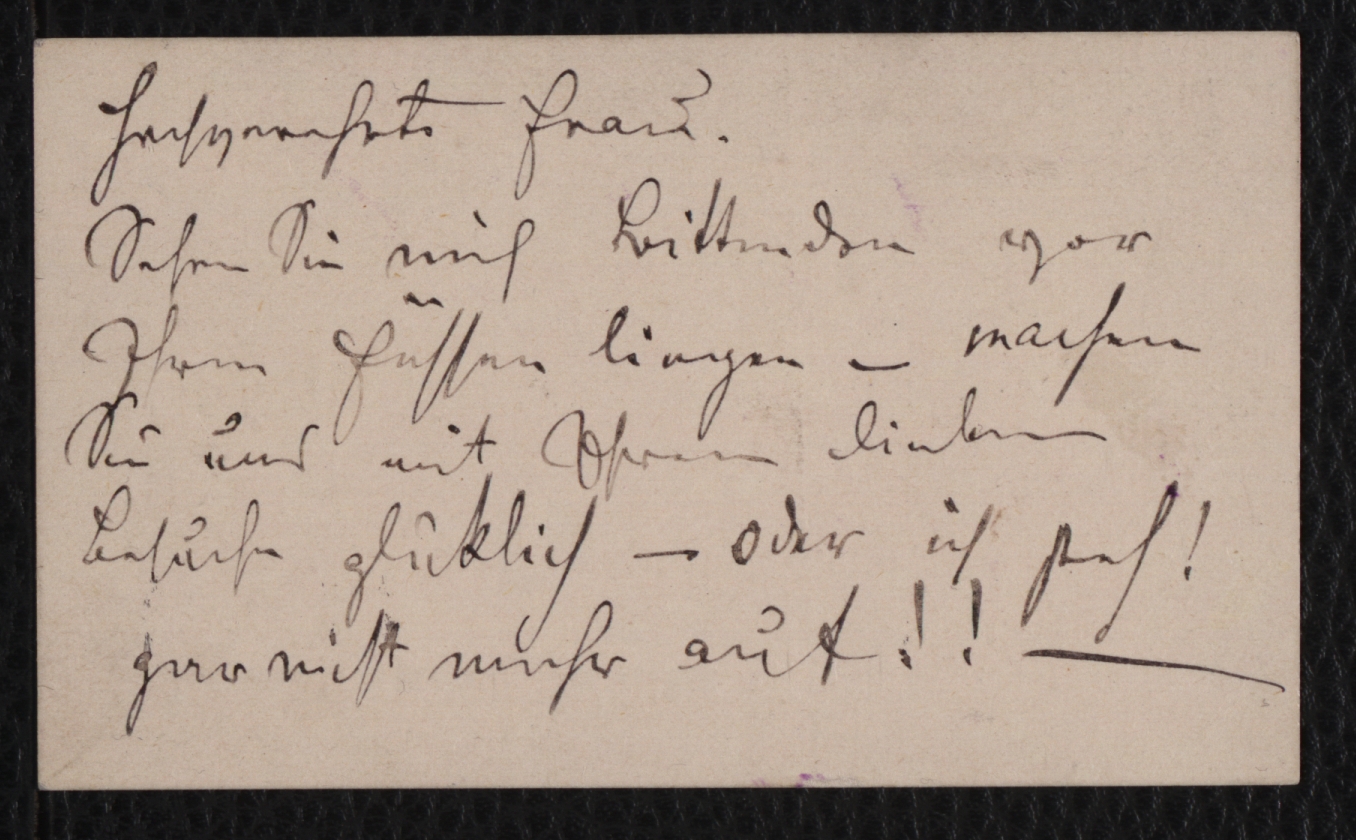 Hochverehrte Frau.
Sehen Sie mich Bittenden vor
Ihren Füssen liegen – machen
Sie uns mit Ihrem lieben
Besuche glüklich – oder ich steh!
gar nicht mehr auf!! —